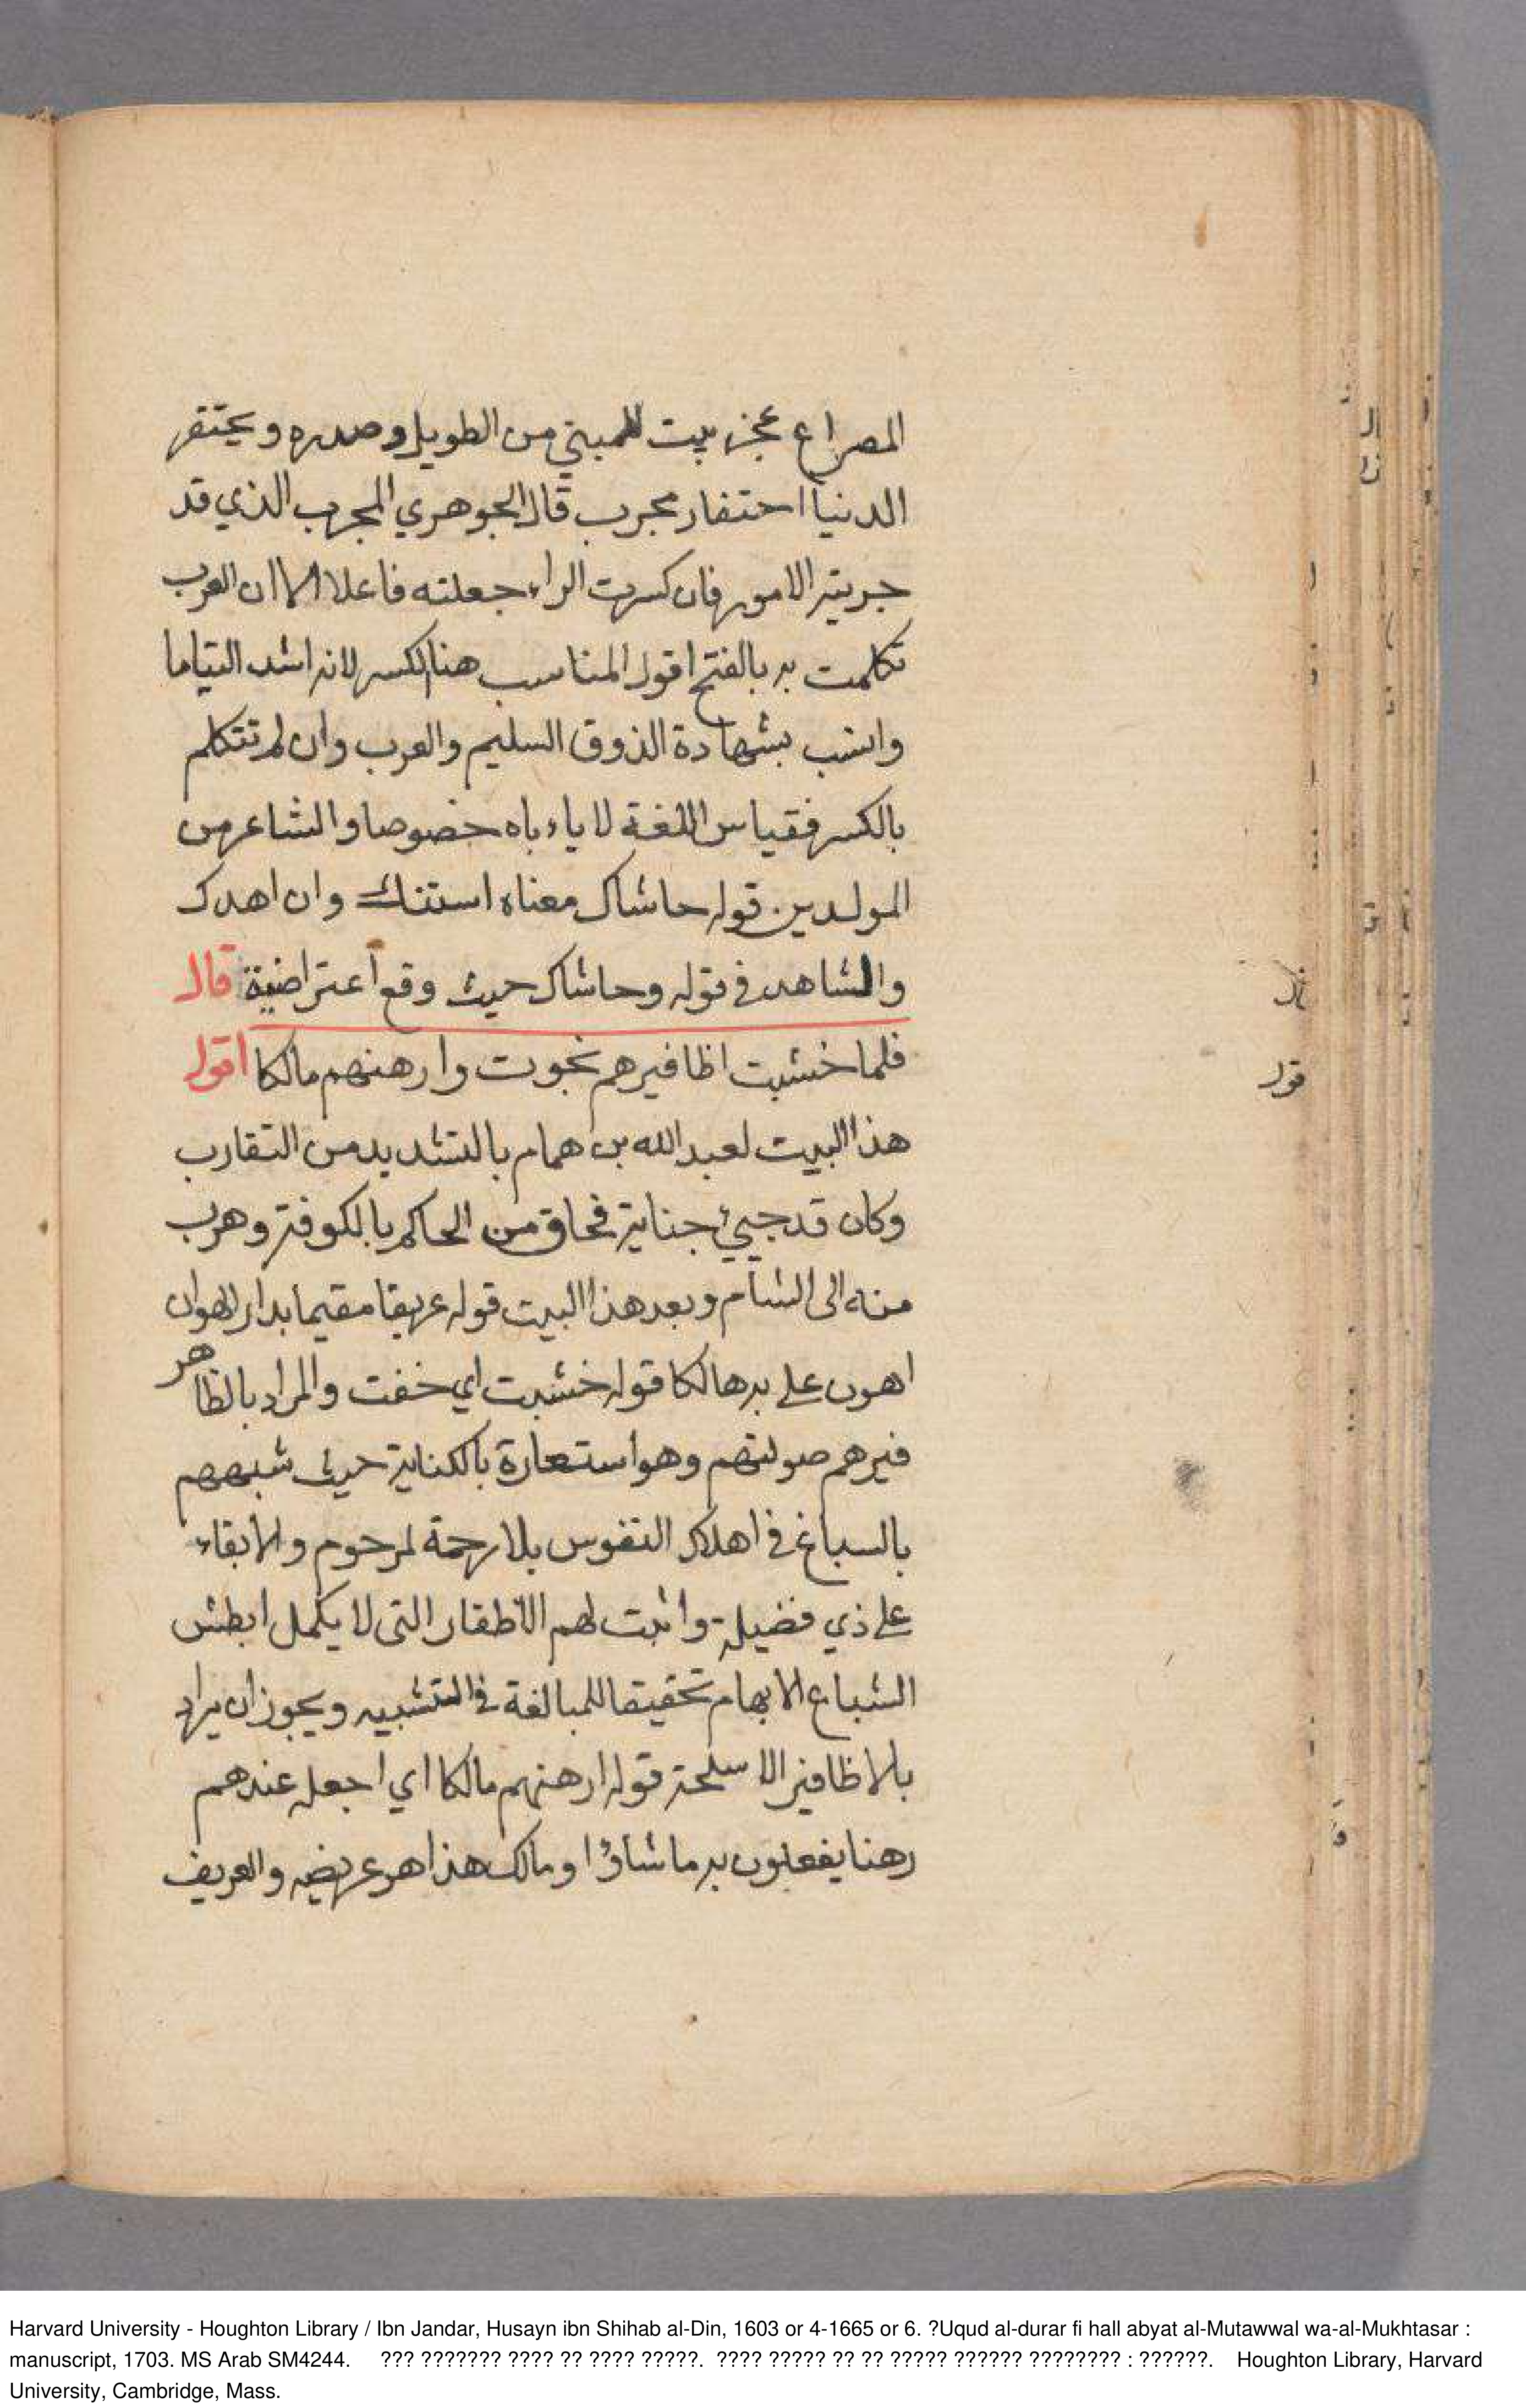 المصراع عجز بيت للمبتني من الطويل وصدره ويحتقر
الدنيا احتقار مجرب قال الجوهري المجرب الذي قد
جربته الامور فان كسرت الراء جعلته فاعلا الا ان العرب
تكلمت به بالفتح اقول المناسب هنا الكسر لانه اشد التياما
وانسب بشهادة الذوق السليم والعرب وان لم تتكلم
بالكسر فقياس اللغة لا ياءباه خصوصا والشاعر من
المولدين قوله حاشاك معناه استثنك وان اهدك
والشاهد في قوله وحاشاك حيث وقع اعتراضية قال
فلما خشيت اظافيرهم نجوت وارهنهم مالكا اقول
هذا البيت لعبد الله بن همام بالتشديد من التقارب
وكان قد جيئ جناية فخاق من الحاكم بالكوفة وهرب
منه الى الشام وبعد هذا البيت قوله عريقا مقيما بدار الهوان
اهون على به هالكا قوله خشيت اي خفت والمراد بالظاهر
فيرهم صولتهم وهو استعارة بالكناية حيث شبههم
بالسباغ في اهلاك النفوس بلا رحمة لمرحوم ولا بقاء
على ذي فضيلة واثبت لهم الاظفار التى لا يكمل ابطش
الشباع الا بهام تحقيقا للمبالغة في التشبيه ويجوز ان يراد
بالاظافير الاسلحة قوله ارهنهم مالكا اي اجعله عندهم
رهنا يفعلون به ما شاؤا ومالك هذا هو عريضه والعريف
Harvard University - Houghton Library / Ibn Jandar, Husayn ibn Shihab al-Din, 1603 or 4-1665 or 6. ?Uqud al-durar fi hall abyat al-Mutawwal wa-al-Mukhtasar :
manuscript, 1703. MS Arab SM4244. ??? ??????? ???? ?? ???? ?????. ???? ????? ?? ?? ????? ?????? ???????? : ??????. Houghton Library, Harvard
University, Cambridge, Mass.